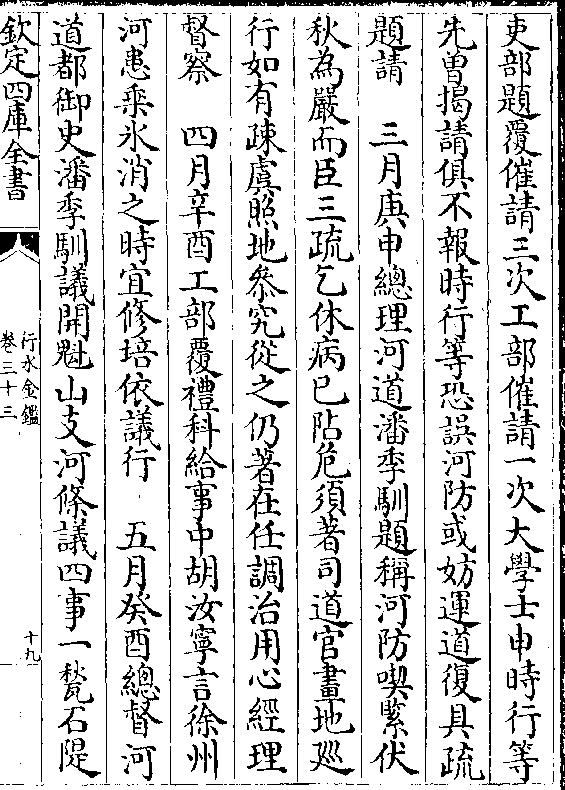 吏部題覆催請三次工部催請一次大學士申時行等
先曾揭請俱不報時行等恐誤河防或妨運道復具疏
題請　三月庚申總理河道潘季馴題稱河防喫緊伏
秋為嚴而臣三疏乞休病已阽危須著司道官畫地廵
行如有疎虞照地叅究從之仍著在任調治用心經理
督察　四月辛酉工部覆禮科給事中胡汝寧言徐州
河患乘氷消之時宜修培依議行　五月癸酉總督河
道都御史潘季馴議開魁山支河條議四事一甃石隄
欽定四庫全書
行水金鑑
卷三十三
十九